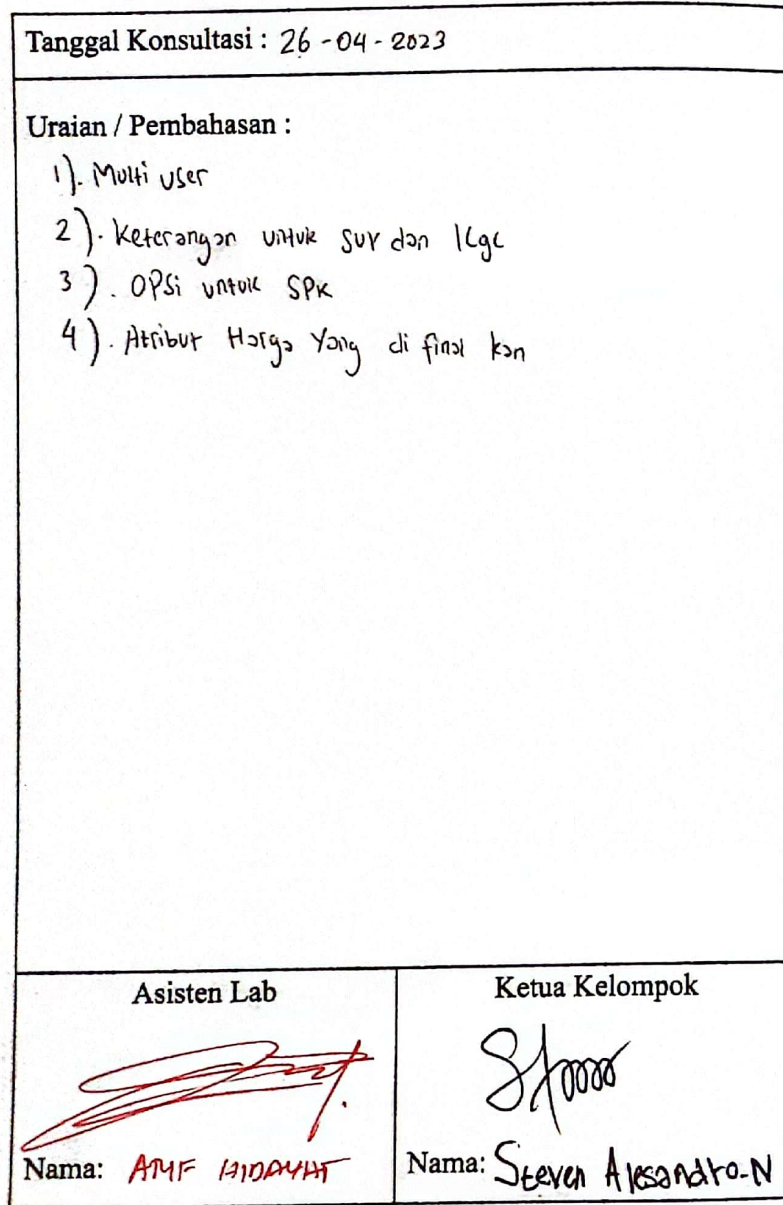 Tanggal Konsultasi : 26-04-2023
Uraian / Pembahasan :
1). Multi user
2). Keterangan untuk SUV dan lcgc
3). OPSi untuk SPK
4). Atribut Harga Yang di final kan
Asisten Lab
Ketua Kelompok
Nama: ATMF HIDAYAT
Nama: Steven Alesandro-N